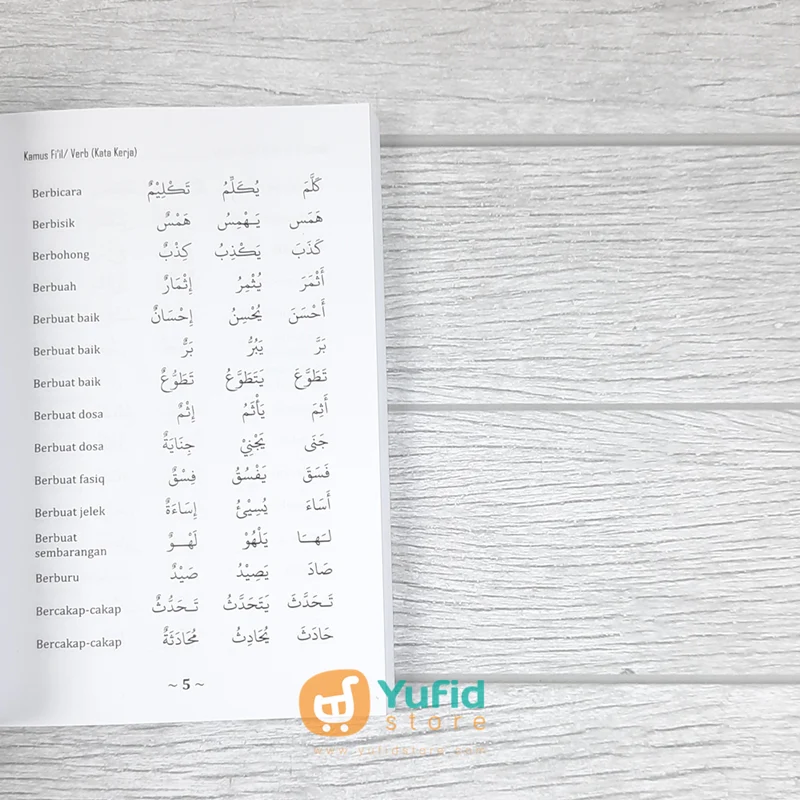 Kamus Fi'il/ Verb (Kata Kerja)
Berbicara تَكْلِيْمٌ يُكَلِّمُ كَلَّمَ
Berbisik هَمْسٌ يَـهْمِسُ هَمَس
Berbohong كِذْبٌ يَكْذِبُ كَذَبَ
Berbuah إِثْمَارٌ يُثْمِرُ أَثْمَرَ
Berbuat baik إِحْسَانٌ يُحْسِنُ أَحْسَنَ
Berbuat baik بَرٌّ يَبُرُّ بَرَّ
Berbuat baik تَطَوُّعٌ يَتَطَوَّعُ تَطَوَّعَ
Berbuat dosa إِثْمٌ يَأْثَمُ أَثِمَ
Berbuat dosa جِنَايَةٌ يَجْنِيْ جَنَى
Berbuat fasiq فِسْقٌ يَفْسُقُ فَسَقَ
Berbuat jelek إِسَاءَةٌ يُسِيْئُ أَسَاءَ
Berbuat
sembarangan لَهْـــوٌ يَلْهُوْ لَـهَـا
Berburu صَيْدٌ يَصِيْدُ صَادَ
Bercakap-cakap تَـحَدُّثٌ يَتَحَدَّثُ تَـحَدَّثَ
Bercakap-cakap مُحَادَثَةٌ يُحَادِثُ حَادَثَ
~ 5 ~
Yufid
store
www.yufidstore.com